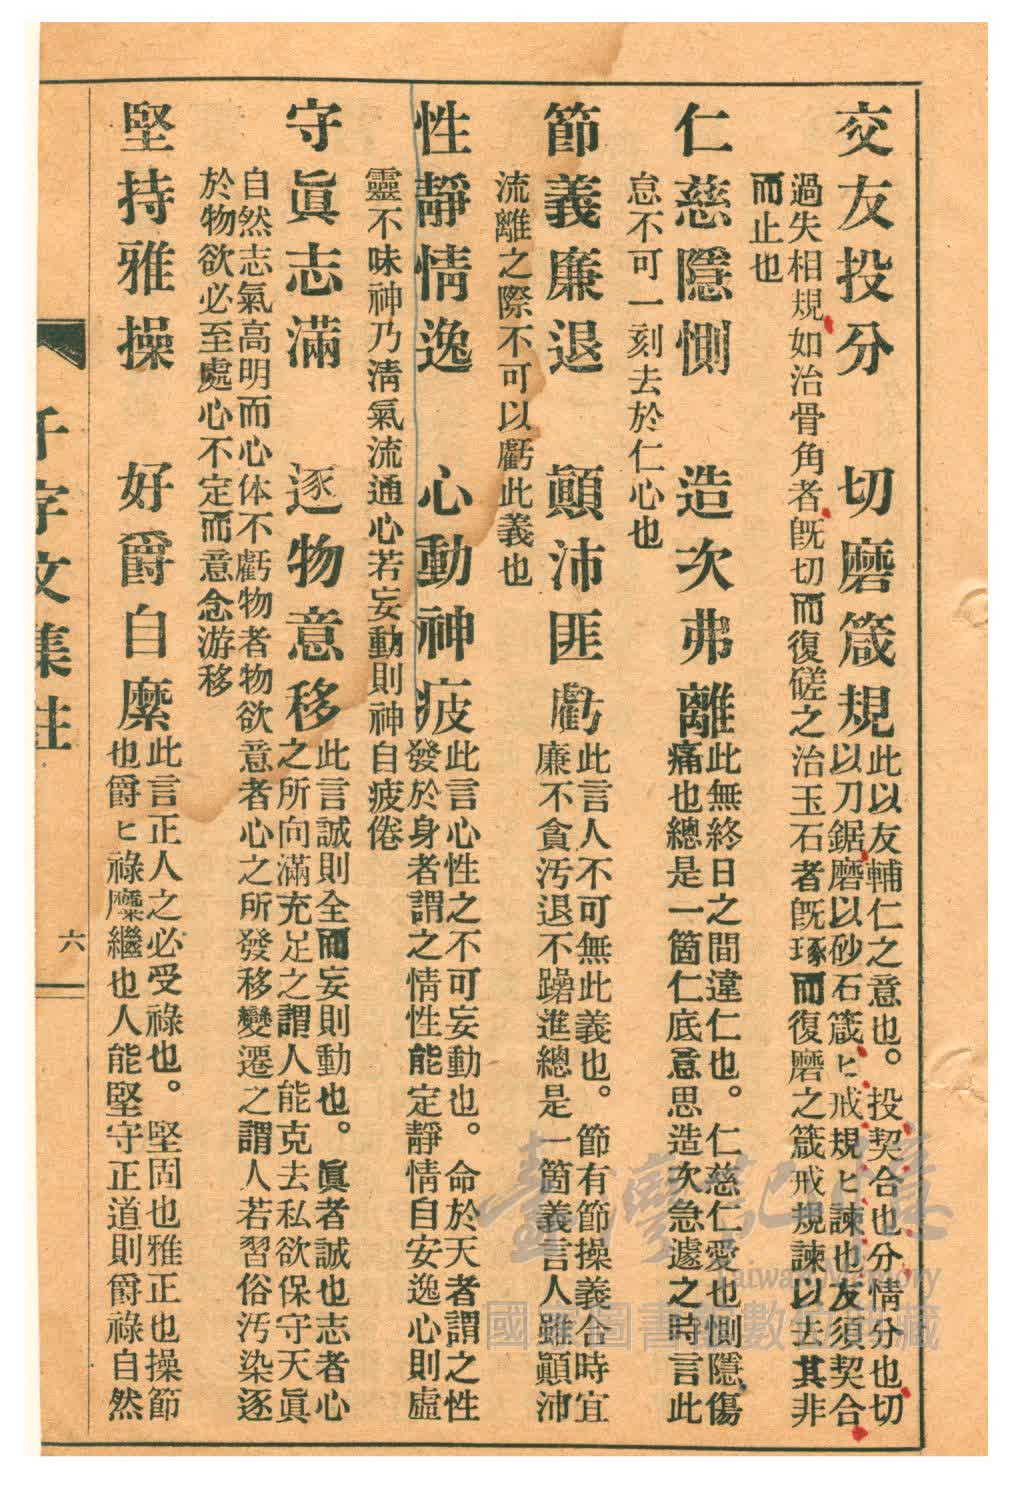 交友投分　切磨箴規
此以友輔仁之意也。投契合也分情分也切
以刀鋸磨以砂石箴ヒ戒規ヒ諫也友須契合
過失相規如治骨角者旣切而復磋之治玉石者旣琢而復磨之箴戒規諫以去其非
而止也
仁慈隱惻　造次弗離
此無終日之間違仁也。仁慈仁愛也惻隱傷
痛也總是一箇仁底意思造次急遽之時言此
怠不可一刻去於仁心也
節義廉退　顚沛匪虧
此言人不可無此義也。節有節操義合時宜
廉不貪汚退不躁進總是一箇義言人雖顚沛
流離之際不可以虧此義也
性靜情逸　心動神疲
此言心性之不可妄動也。命於天者謂之性
發於身者謂之情性能定靜情自安逸心則虛
靈不味神乃淸氣流通心若妄動則神自疲倦
守眞志滿　逐物意移
此言誠則全而妄則動也。眞者誠也志者心
之所向滿充足之謂人能克去私欲保守天眞
自然志氣高明而心体不虧物者物欲意者心之所發移變遷之謂人若習俗汚染逐
於物欲必至處心不定而意念游移
堅持雅操　好爵自縻
此言正人之必受祿也。堅固也雅正也操節
也爵ヒ祿縻繼也人能堅守正道則爵祿自然
千字文集註
六
臺灣記憶
Taiwan Memory
國家圖書館數位典藏